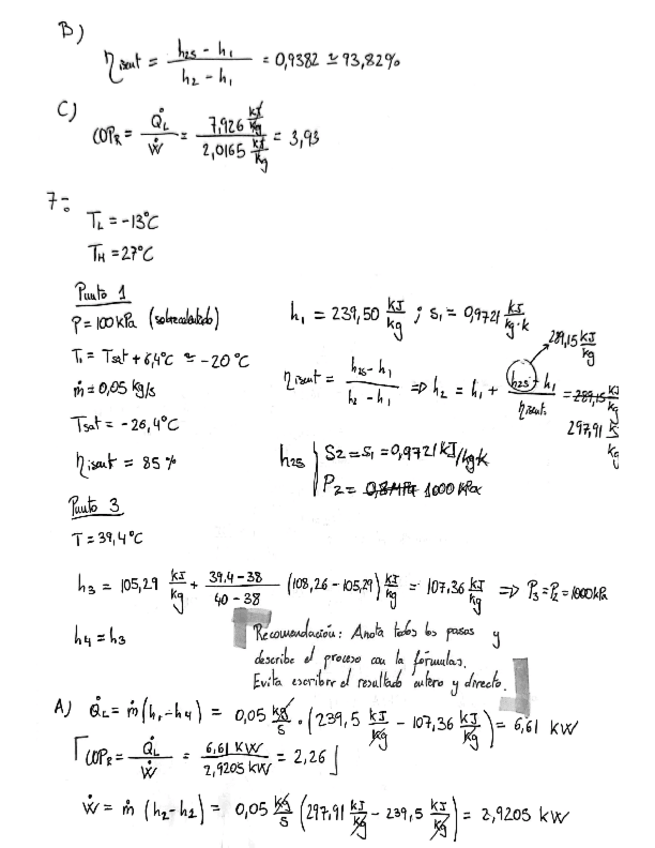 B)
η isent = (h2s - h1) / (h2 - h1) = 0,9382 ≃ 93,82%
C)
COPR = Q̇L / Ẇ = 7,926 kJ/kg / 2,0165 kJ/kg = 3,93
7:
TL = -13°C
TH = 27°C
Punto 1
P = 100 kPa (sobrecalentado)
h1 = 239,50 kJ/kg ; s1 = 0,9721 kJ/kg·k
T1 = Tsat + 6,4°C ≃ -20°C
289,15 kJ/kg
ηisent = (h2s - h1) / (h2 - h1) => h2 = h1 + (h2s - h1) / ηisent. = 289,15 kJ/kg
297,91 kJ/kg
ṁ = 0,05 kg/s
Tsat = -26,4°C
ηisent = 85%
h2s { S2 = S1 = 0,9721 kJ/kg·k
P2 = 0,8 MPa 1000 kPa
Punto 3
T = 39,4°C
h3 = 105,29 kJ/kg + (39.4 - 38) / (40 - 38) (108,26 - 105,29) kJ/kg = 107,36 kJ/kg => P3 = P2 = 1000 kPa
h4 = h3
Recomendación: Anota todos los pasos y
describe el proceso con la fórmulas.
Evita escribir el resultado entero y directo.
A) Q̇L = ṁ(h1 - h4) = 0,05 kg/s · (239,5 kJ/kg - 107,36 kJ/kg) = 6,61 kW
⌈COPR = Q̇L / Ẇ = 6,61 KW / 2,9205 kW = 2,26⌋
Ẇ = ṁ (h2 - h1) = 0,05 kg/s (297,91 kJ/kg - 239,5 kJ/kg) = 2,9205 kW